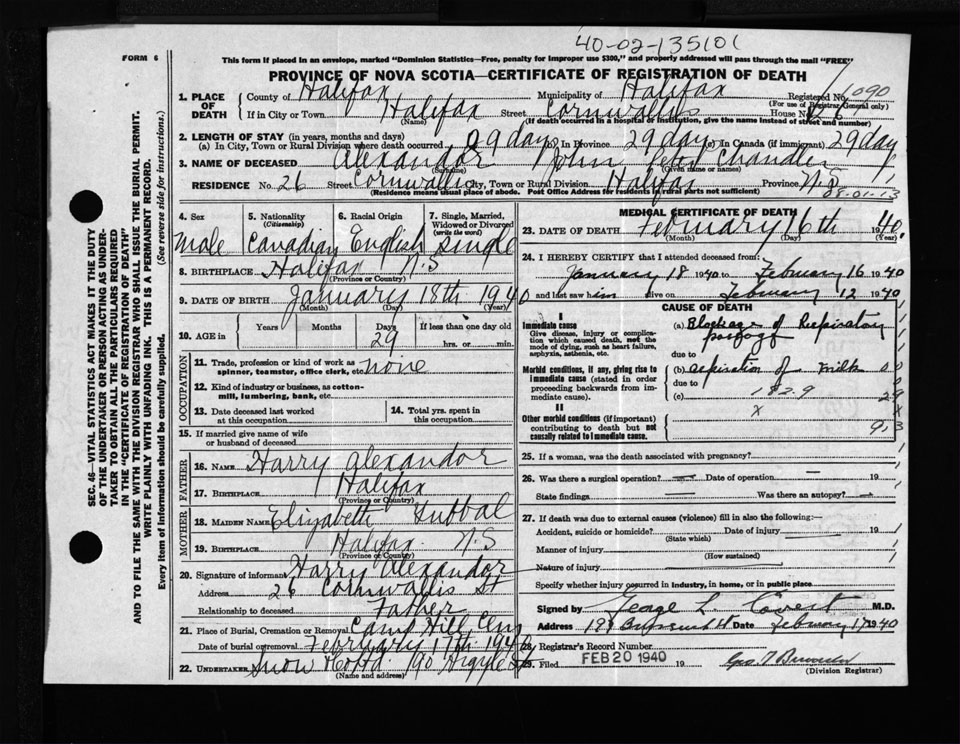 40-02-135101
FORM 6
This form if placed in an envelope, marked "Dominion Statistics—Free, penalty for improper use $300," and properly addressed will pass through the mail "FREE"
PROVINCE OF NOVA SCOTIA—CERTIFICATE OF REGISTRATION OF DEATH
1. PLACE OF DEATH County of Halifax Municipality of Halifax Registered No. 1090
(For use of Registrar General only)
If in City or Town Halifax Street Cornwallis House No. 26
(Name) (If death occurred in a hospital or institution, give the name instead of street and number)
2. LENGTH OF STAY (in years, months and days)
(a) In City, Town or Rural Division where death occurred 29 days (b) In Province 29 days (c) In Canada (if immigrant) 29 days
3. NAME OF DECEASED Alexandor John Peter Chandler
(Surname) (Given name or names)
RESIDENCE No. 26 Street Cornwallis City, Town or Rural Division Halifax Province N.S
(Residence means usual place of abode. Post Office Address for residents in rural parts not sufficient)
08-01-13
4. Sex 5. Nationality (Citizenship) 6. Racial Origin 7. Single, Married, Widowed or Divorced (write the word)
Male Canadian English Single
8. BIRTHPLACE Halifax N.S
(Province or Country)
9. DATE OF BIRTH January 18th 1940
(Month) (Day) (Year)
10. AGE in Years Months Days If less than one day old
29 hrs. or min.
OCCUPATION
11. Trade, profession or kind of work as spinner, teamster, office clerk, etc. none
12. Kind of industry or business, as cotton-mill, lumbering, bank, etc.
13. Date deceased last worked at this occupation 14. Total yrs. spent in this occupation
15. If married give name of wife or husband of deceased
FATHER
16. NAME Harry Alexandor
17. BIRTHPLACE Halifax
(Province or Country)
MOTHER
18. MAIDEN NAME Elizabeth
19. BIRTHPLACE Halifax N.S
(Province or Country)
20. Signature of informant Harry Alexandor
Address 26 Cornwallis St
Relationship to deceased Father
21. Place of Burial, Cremation or Removal Camp Hill Cem
Date of burial or removal February 17th 1940
22. UNDERTAKER Snow & Co Ltd 90 Argyle St
(Name and address)
MEDICAL CERTIFICATE OF DEATH
23. DATE OF DEATH February 16th 1940.
(Month) (Day) (Year)
24. I HEREBY CERTIFY that I attended deceased from:
January 18 1940 to February 16 1940
and last saw him alive on February 12 1940
CAUSE OF DEATH
I
Immediate cause
Give disease, injury or complication which caused death, not the mode of dying, such as heart failure, asphyxia, asthenia, etc.
(a) Blockage of Respiratory passage
due to
Morbid conditions, if any, giving rise to immediate cause (stated in order proceeding backwards from immediate cause).
(b) aspiration of milk
due to
(c) 182.9
II
Other morbid conditions (if important) contributing to death but not causally related to immediate cause.
x
25. If a woman, was the death associated with pregnancy?
26. Was there a surgical operation? — Date of operation 19
State findings Was there an autopsy? —
27. If death was due to external causes (violence) fill in also the following:—
Accident, suicide or homicide? Date of injury 19
(State which)
Manner of injury
(How sustained)
Nature of injury
Specify whether injury occurred in industry, in home, or in public place
Signed by George L. Covert M.D.
Address Date February 17 1940
28. Registrar's Record Number
29. Filed FEB 20 1940 19
(Division Registrar)
SEC. 46—VITAL STATISTICS ACT MAKES IT THE DUTY
OF THE UNDERTAKER OR PERSON ACTING AS UNDER-
TAKER TO OBTAIN ALL THE PARTICULARS REQUIRED
IN THE "CERTIFICATE OF REGISTRATION OF DEATH"
AND TO FILE THE SAME WITH THE DIVISION REGISTRAR WHO SHALL ISSUE THE BURIAL PERMIT.
WRITE PLAINLY WITH UNFADING INK. THIS IS A PERMANENT RECORD.
Every item of information should be carefully supplied. (See reverse side for instructions.)